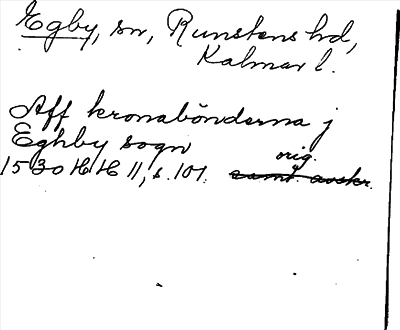 Egby, sn, Runstens hd,
Kalmar l.
Aff kronabönderna j
Eghby sogn
orig.
1530 HH II, s. 101. samt. avskr.